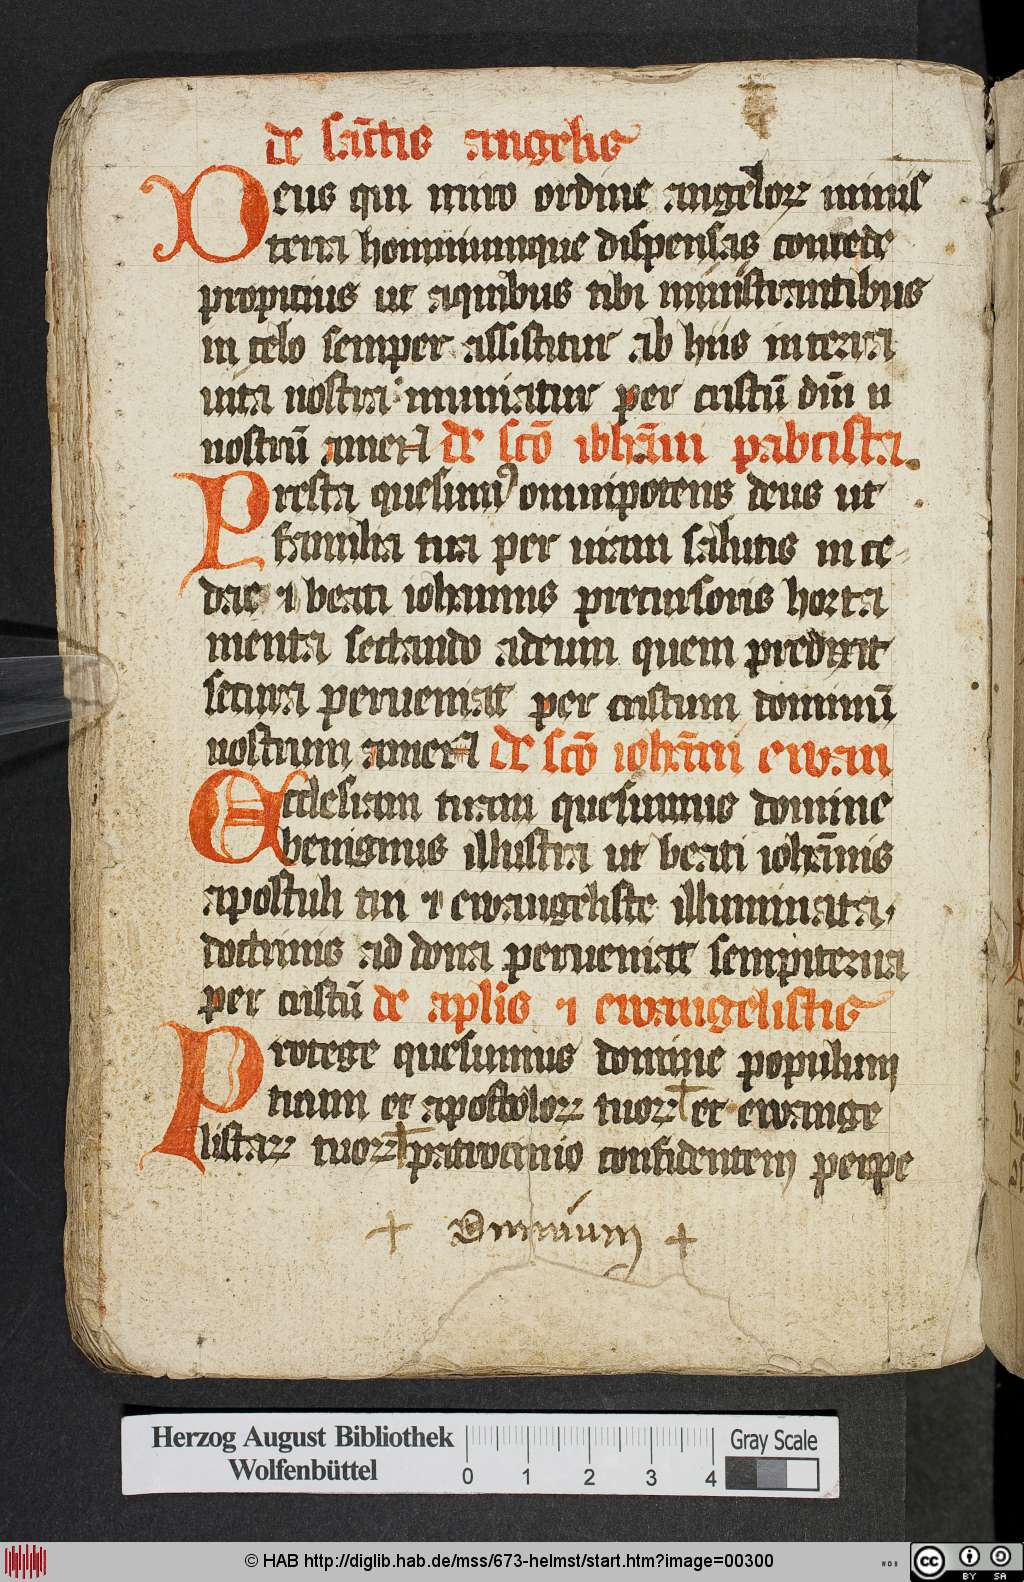 de sāctis angelis
Deus qui miro ordine angeloꝝ minis
teria hominumque dispensas concede
propicius ut aquibus tibi ministrantibus
in celo semper assistitur ab hiis in terra
uita nostra muniatur per cristū dīm n
nostrū amen de scō iohāni pabtista
Presta quesumꝰ omnipotens deus ut
familia tua per uiam salutis in ce
dat ⁊ beati iohannis precursoris horta
menta sectando adeum quem predixit
secura perueniat per cristum dominū
nostrum amen de scō iohāni ewan
Ecclesiam tuam quesumus domine
benignus illustra ut beati iohānis
apostuli tui ⁊ ewangeliste illuminata
doctrinis ad dona perueniat sempiterna
per cristū de aplīs ⁊ ewangelistis
Protege quesumus domine populum
tuum et apostoloꝝ tuoꝝ et ewange
listaꝝ tuoꝝ patrocinio confidentem perpe
+ Omnium +
Herzog August Bibliothek
Wolfenbüttel
0 1 2 3 4
Gray Scale
© HAB http://diglib.hab.de/mss/673-helmst/start.htm?image=00300
WDB
cc BY SA